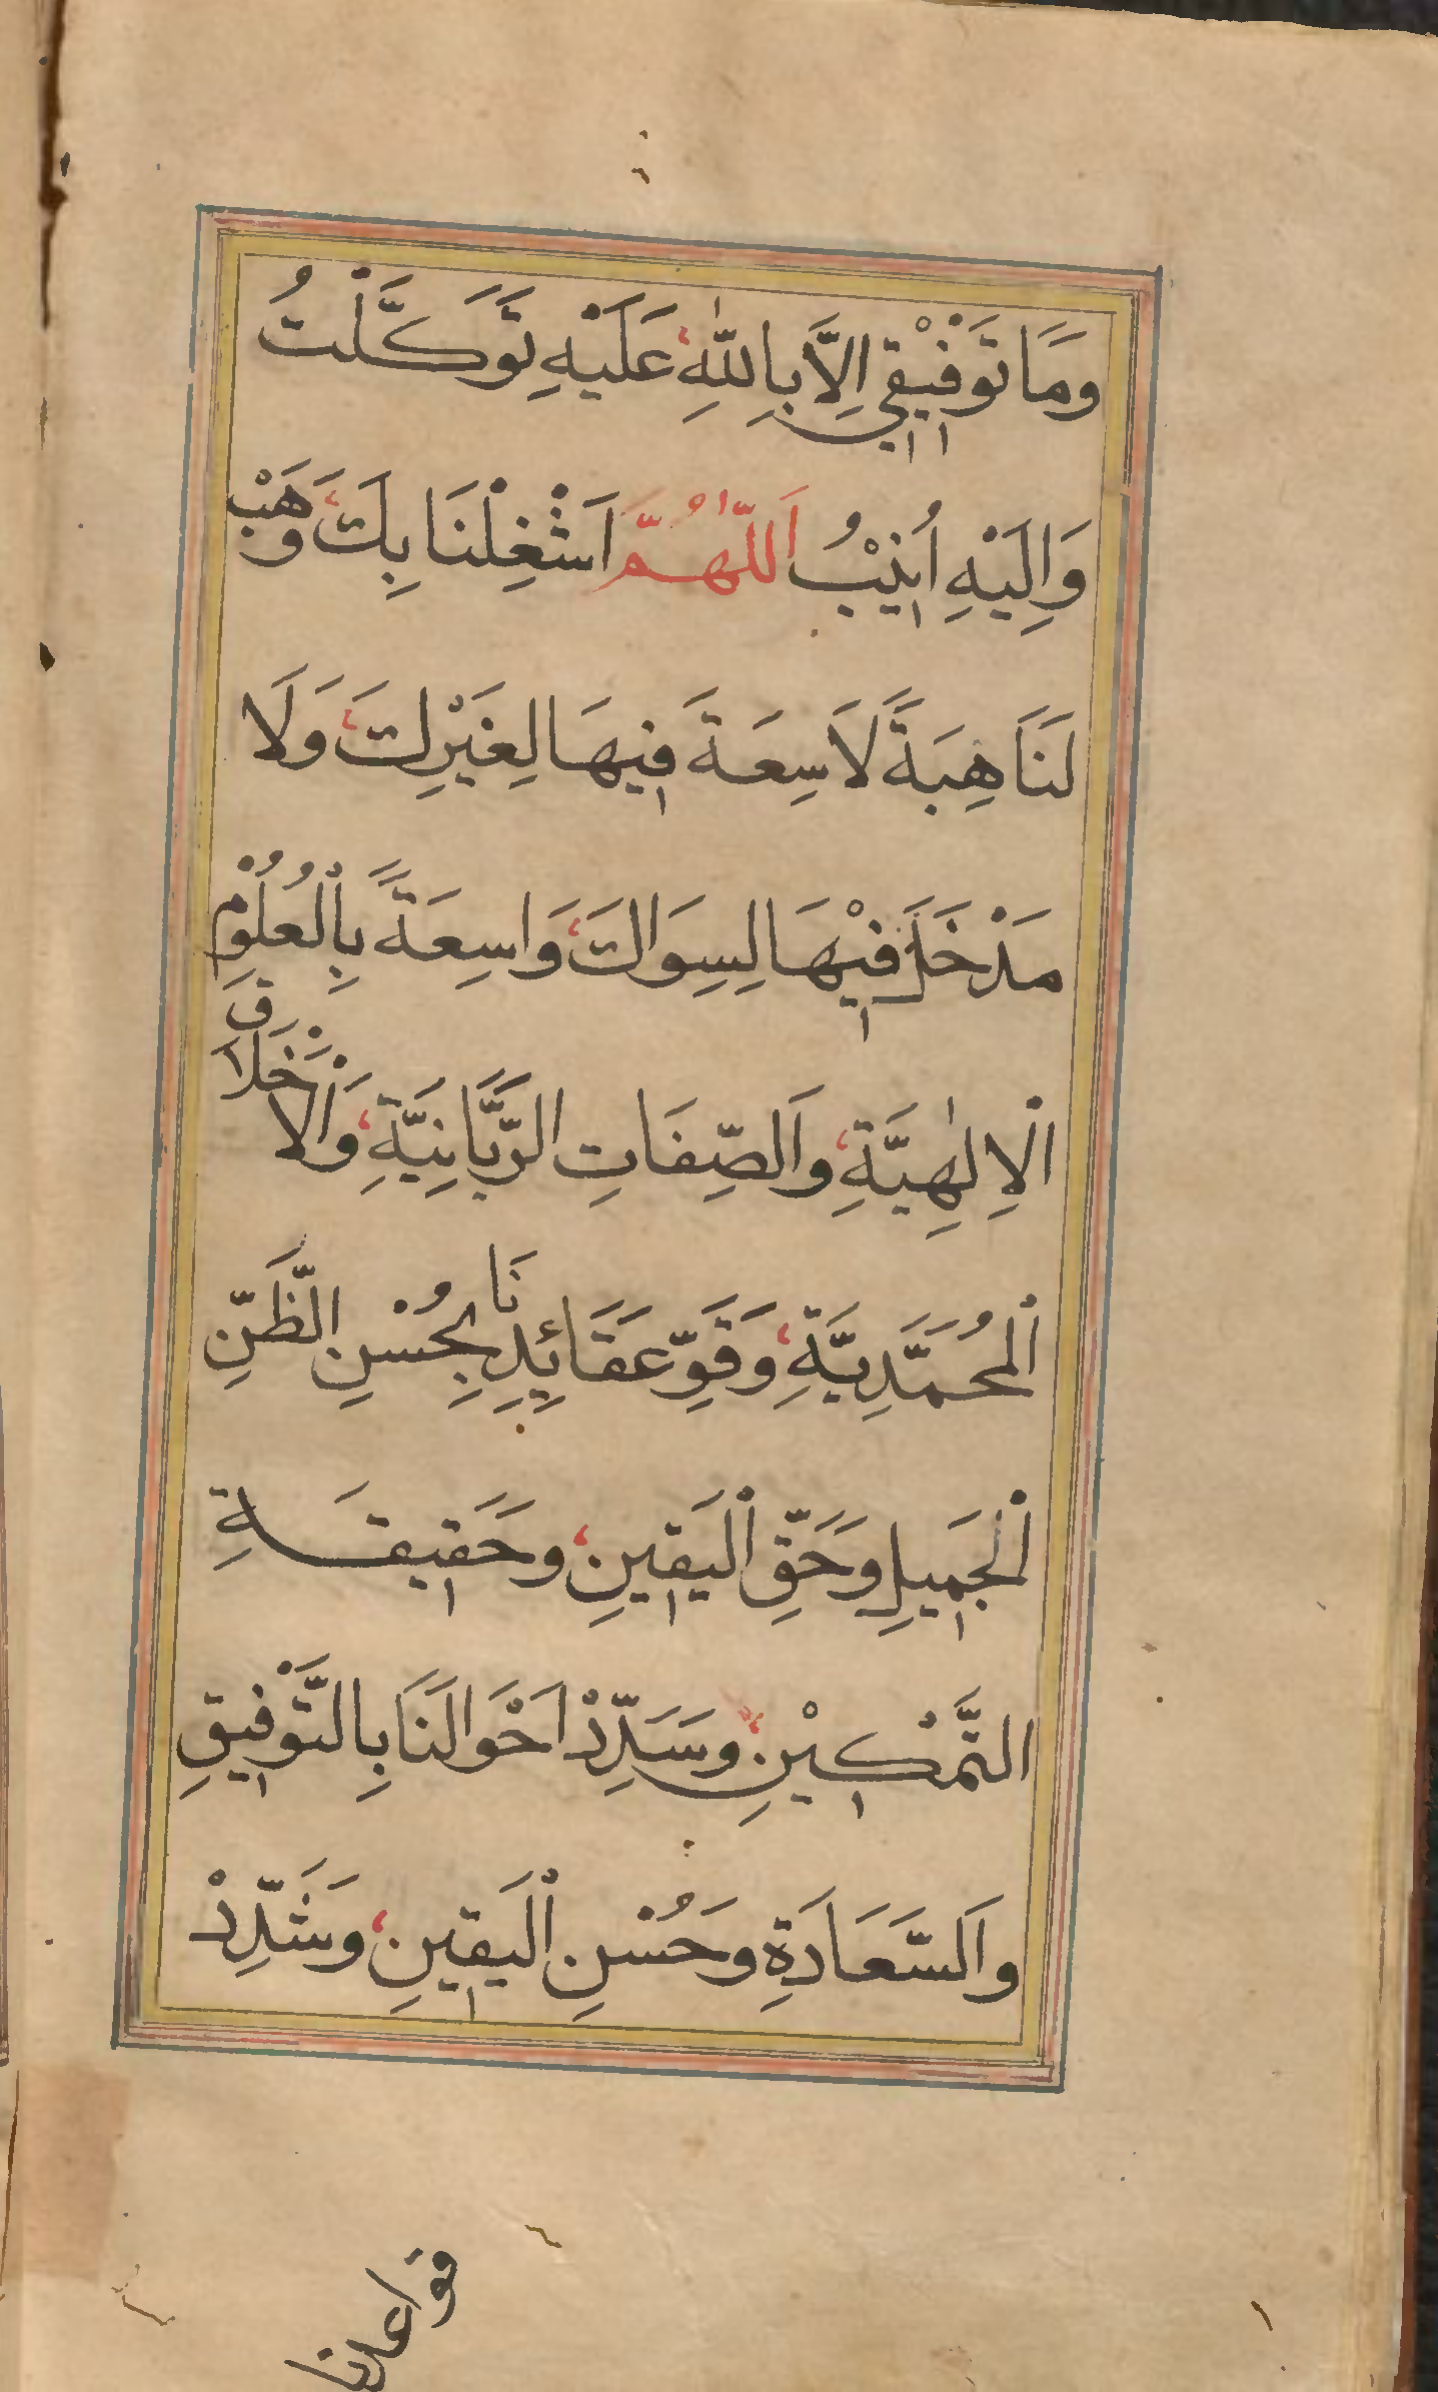 وَمَا تَوْفِيْقِي اِلَّا بِاللّٰهِ عَلَيْهِ تَوَكَّلْتُ
وَاِلَيْهِ اُنِيْبُ اَللّٰهُمَّ اَشْغِلْنَا بِكَ وَهَبْ
لَنَا هِبَةً لَا سِعَةَ فِيهَا لِغَيْرِكَ وَلَا
مَدْخَلَ فِيْهَا لِسِوَاكَ وَاسِعَةً بِالْعُلُوْمِ
الْاِلٰهِيَّةِ وَالصِّفَاتِ الرَّبَّانِيَّةِ وَالْاَخْلَاقِ
الْمُحَمَّدِيَّةِ وَقَوِّ عَقَائِدِنَا بِحُسْنِ الظَّنِّ
الْجَمِيلِ وَحَقِّ الْيَقِينِ وَحَقِيقَةِ
التَّمْكِيْنِ وَسَدِّدْ اَحْوَالَنَا بِالتَّوْفِيقِ
وَالسَّعَادَةِ وَحُسْنِ الْيَقِينِ وَشَدِّدْ
قواعدنا